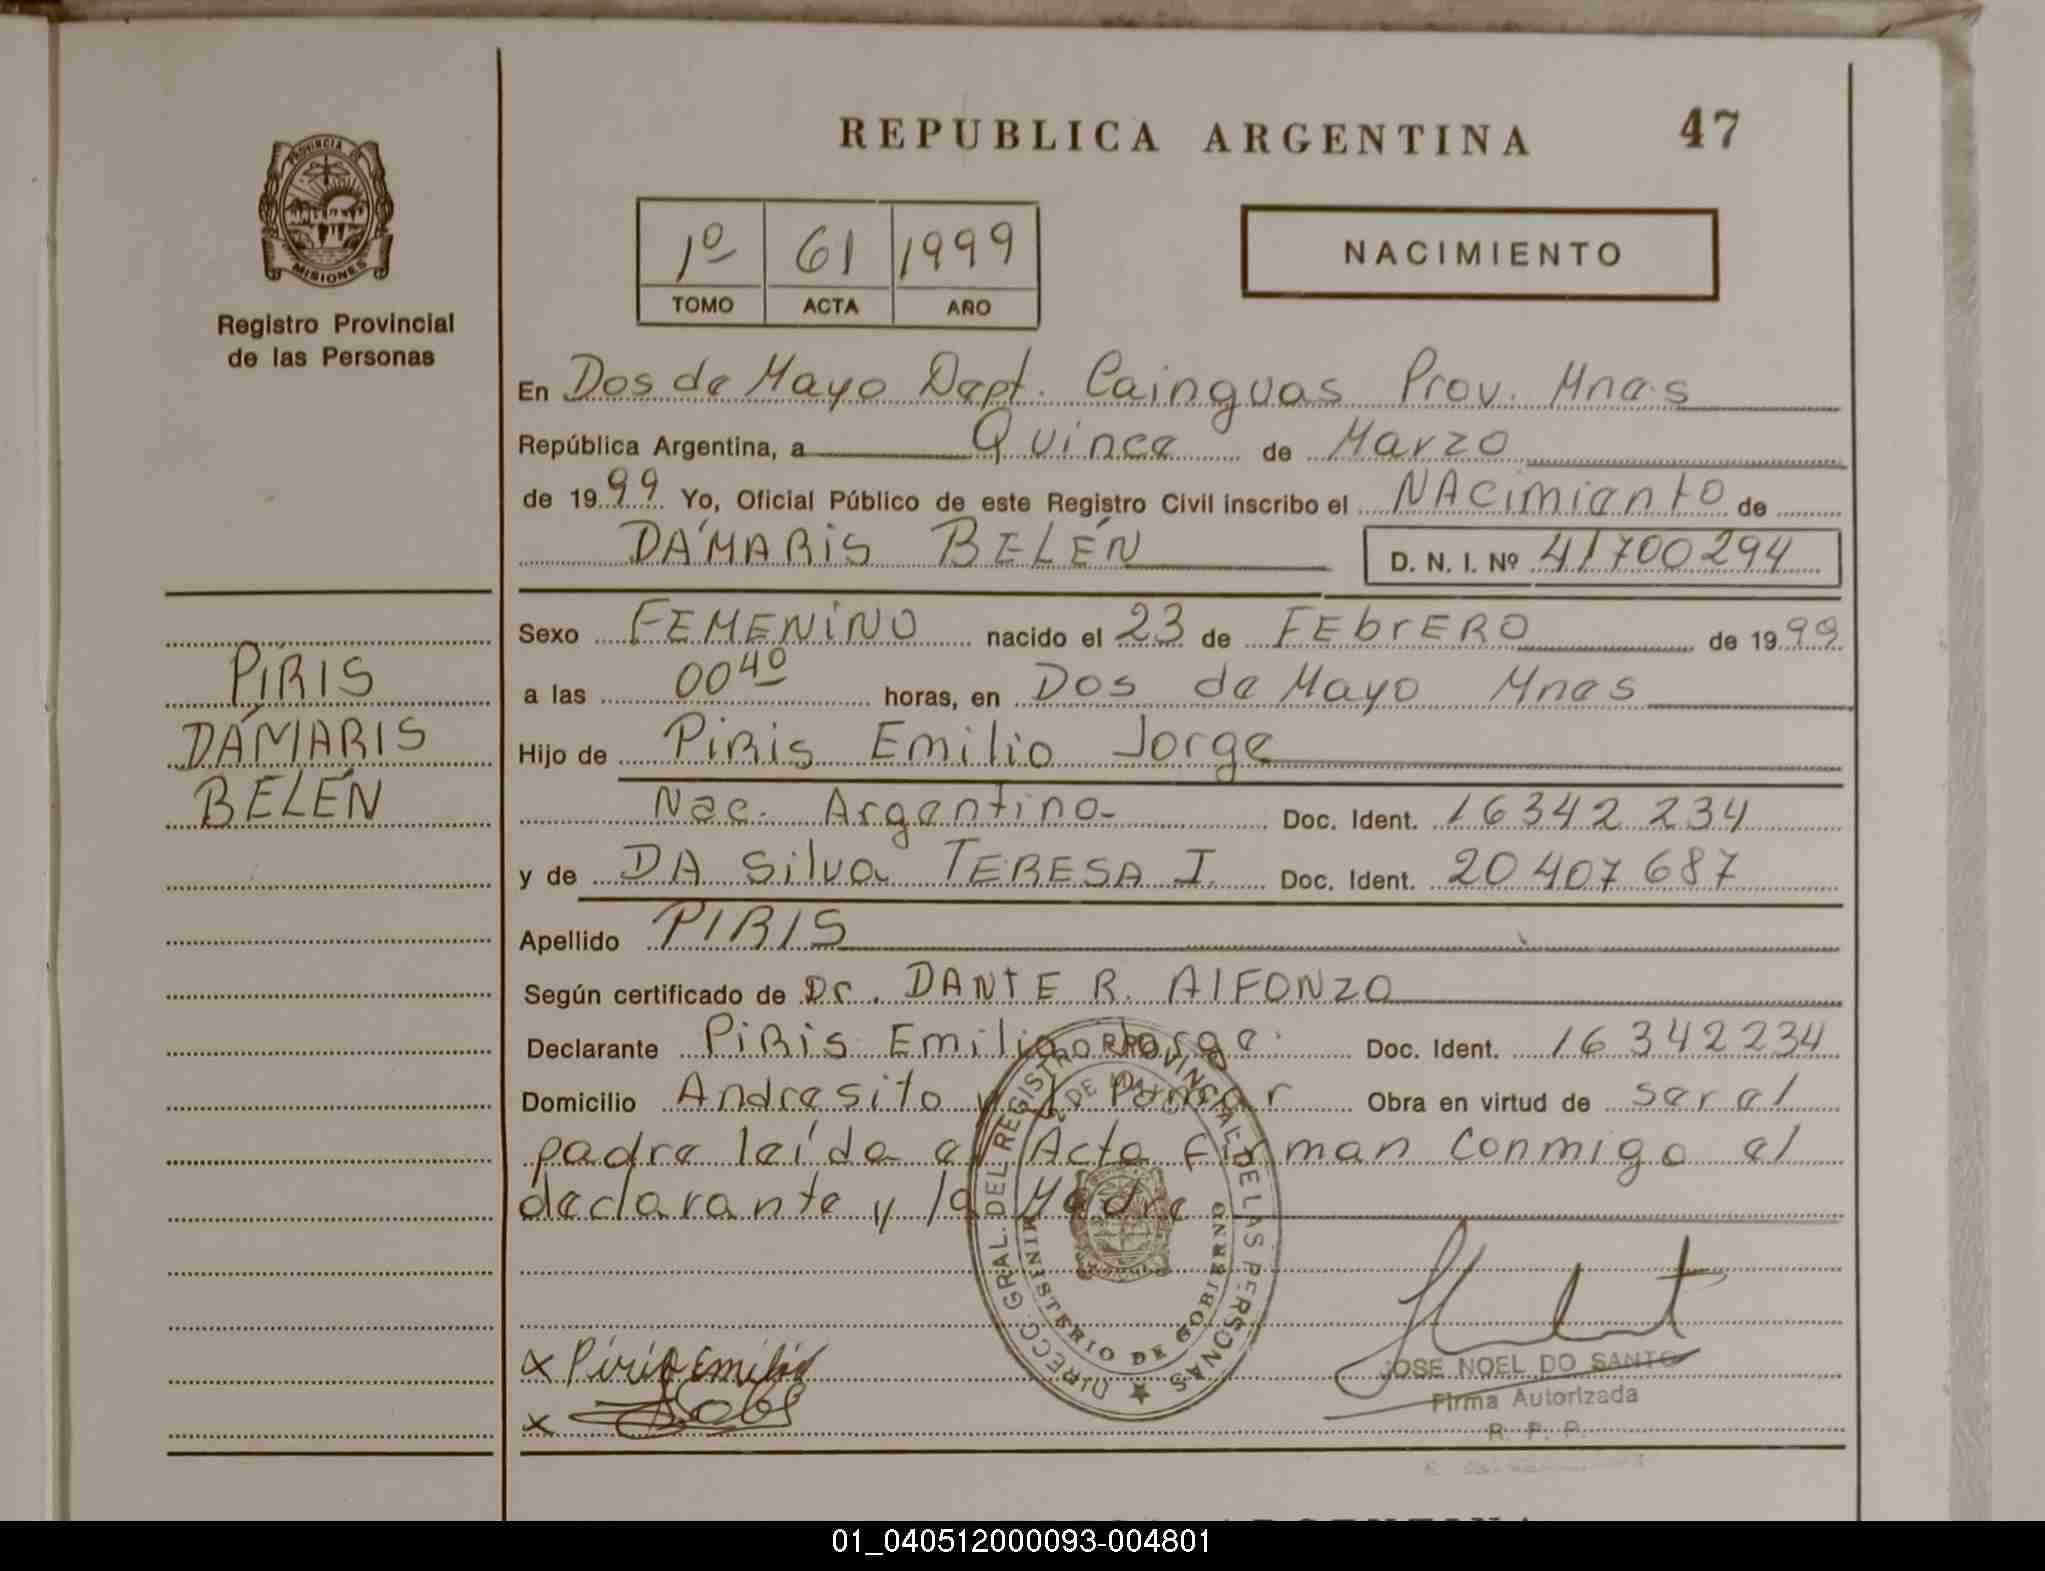 REPUBLICA ARGENTINA
47
PROVINCIA DE
MISIONES
Registro Provincial
de las Personas
1º 61 1999
TOMO ACTA AÑO
NACIMIENTO
En Dos de Mayo Dept. Cainguas Prov. Mnes
República Argentina, a Quince de Marzo
de 1999 Yo, Oficial Público de este Registro Civil inscribo el NAcimiento de
DÁMARIS BELÉN D. N. I. Nº 41700294
Sexo FEMENINO nacido el 23 de FEbrERO de 1999
a las 00 40 horas, en Dos de Mayo Mnes
Hijo de PIRIS Emilio Jorge
Nac. Argentino- Doc. Ident. 16342 234
y de DA Silva TERESA I. Doc. Ident. 20 407 687
Apellido PIRIS
Según certificado de Dr. DANTE R. AlFONZO
Declarante PIRIS Emilio Jorge Doc. Ident. 16 342234
Domicilio Andresito y Obra en virtud de ser el
padre leída el Acta Firman conmigo el
declarante y la Madre
PIRIS
DÁMARIS
BELÉN
DIRECC. GRAL. DEL REGISTRO PROVINCIAL DE LAS PERSONAS
2 DE MAYO
MINISTERIO DE GOBIERNO
x Piris Emilio
x
JOSE NOEL DO SANTO
Firma Autorizada
R. P. P.
01_040512000093-004801